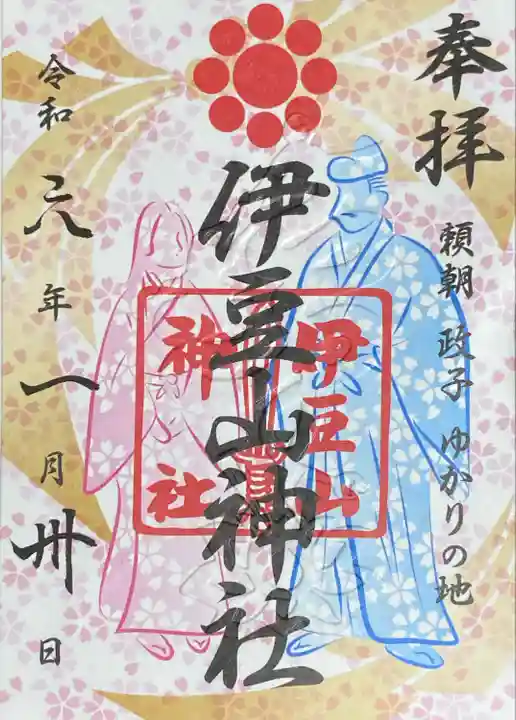 奉拝
頼朝 政子 ゆかりの地
伊豆山神社
伊豆山
神社
令和六年一月卅日